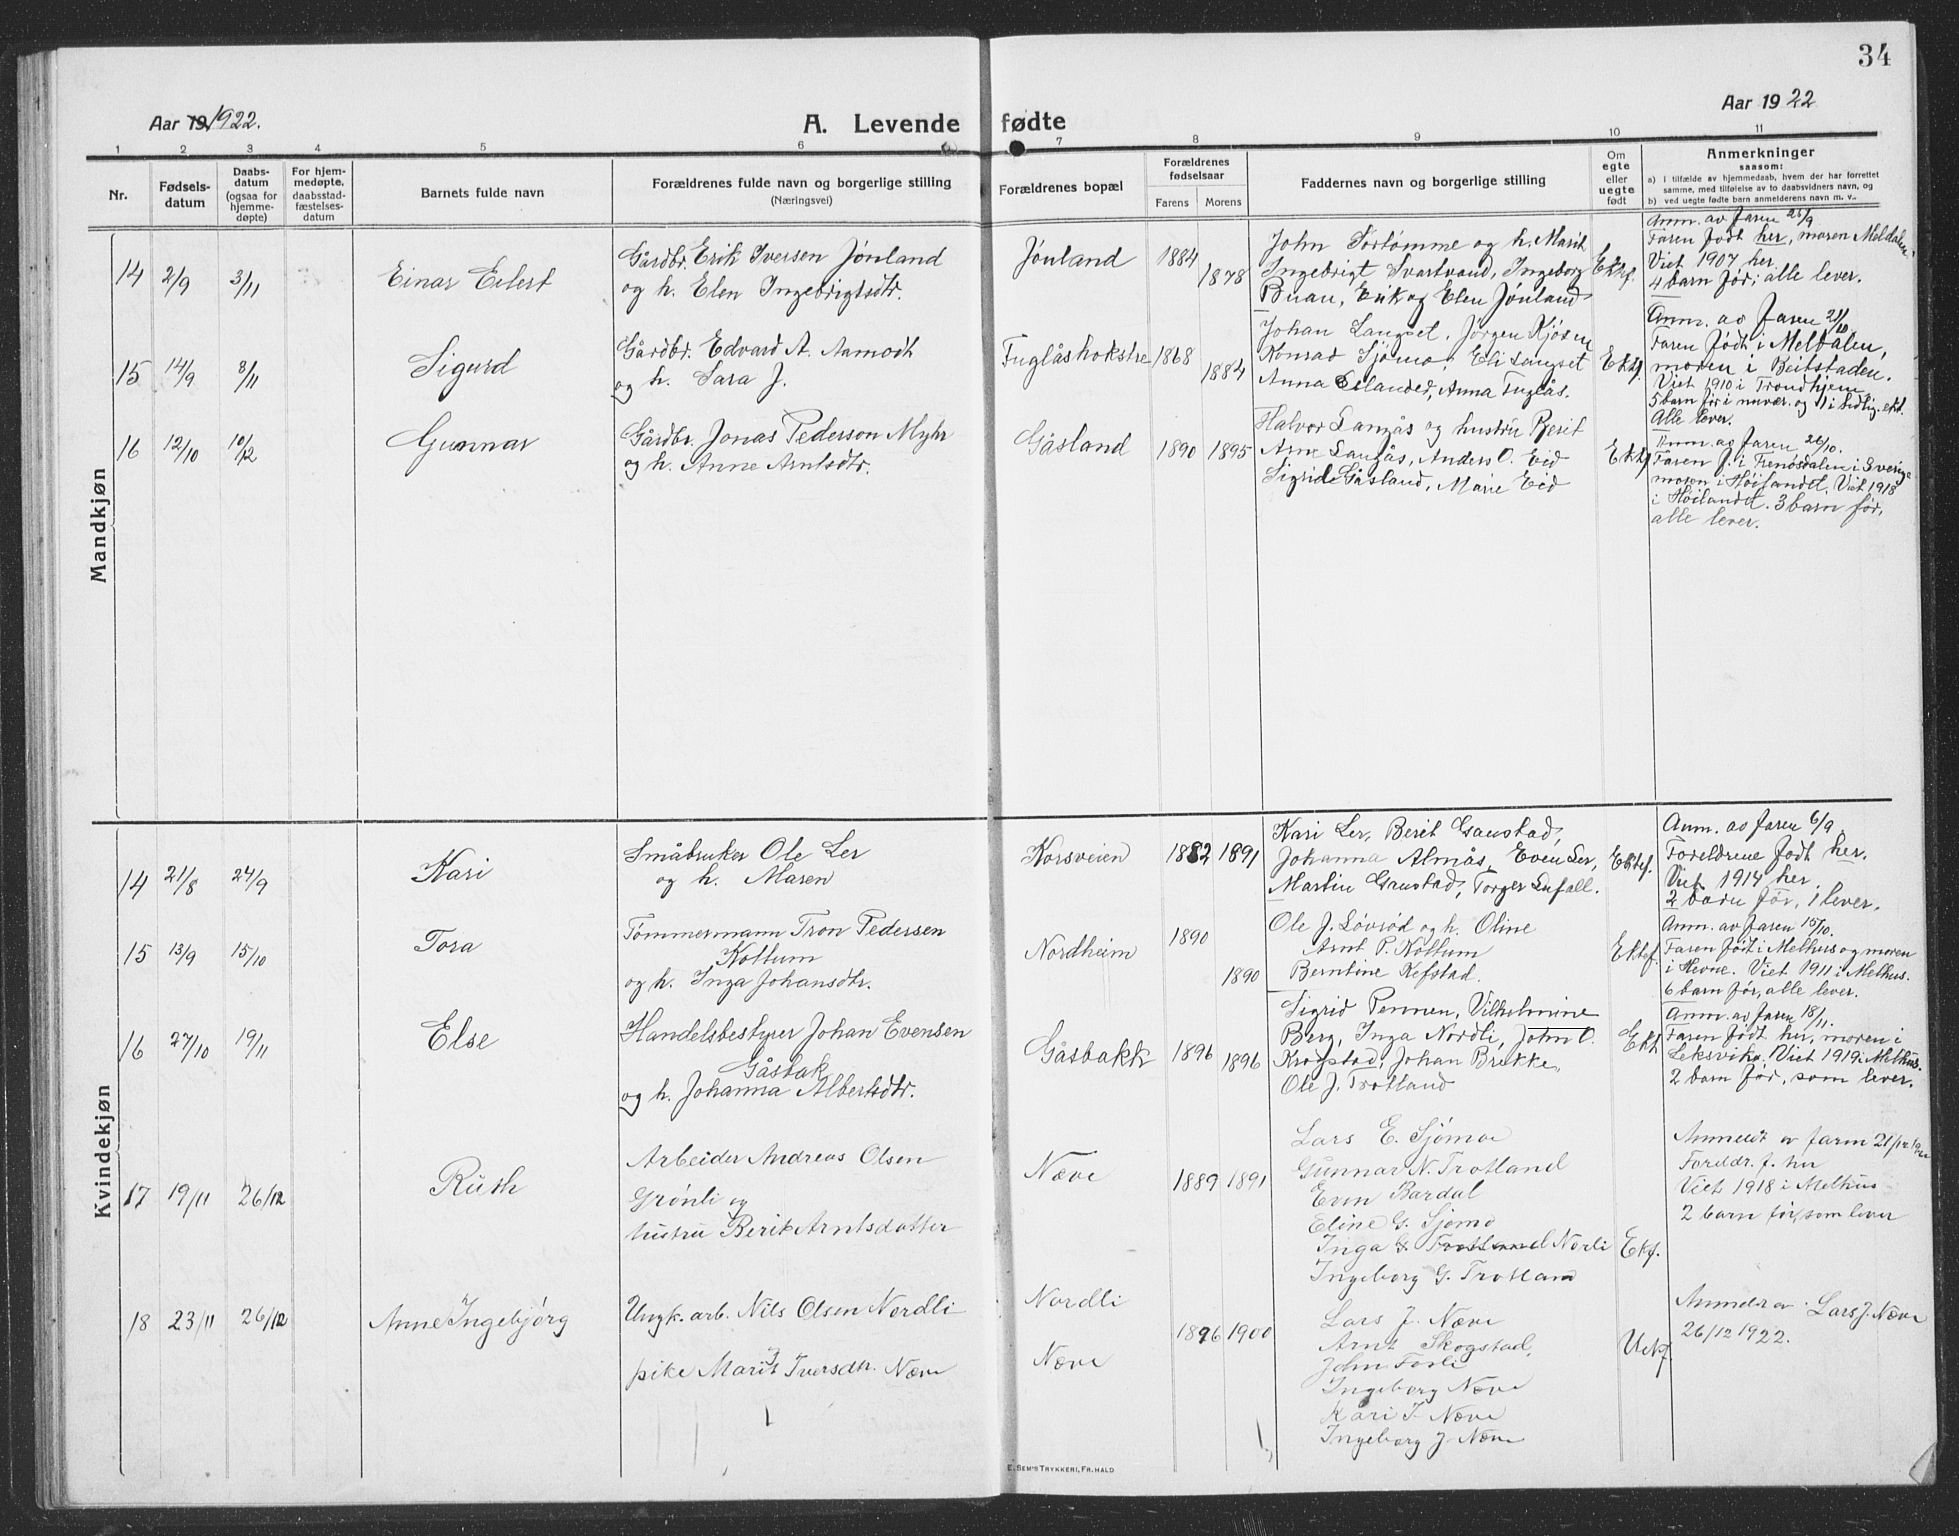 34
Aar 19 1922.
A. Levende fødte
Aar 1922
1 2 3 4 5 6 7 8 9 10 11
Nr.
Fødsels-
datum
Daabs-
datum
(ogsaa for
hjemme-
døpte)
For hjem-
medøpte,
daabsstad-
fæstelses-
datum
Barnets fulde navn
Forældrenes fulde navn og borgerlige stilling
(Næringsvei)
Forældrenes bopæl
Forældrenes
fødselsaar
Farens Morens
Faddernes navn og borgerlige stilling
Om
egte
eller
uegte
født
Anmerkninger
saasom:
a) I tilfælde av hjemmedaab, hvem der har forrettet
samme, med tilføielse av to daabsvidners navn, og
b) ved uegte fødte barn anmelderens navn m. v..
Mandkjøn
14 2/9 3/11 Einar Eilert
Gårdbr. Erik Iversen Jønland
og h. Elen Ingebrigtsdtr.
Jønland 1884 1878
John Sørtømme og h. Marit
Ingebrigt Svartvand, Ingeborg
Buan, Erik og Elen Jønland
Ektf.
Anm. av faren 25/9
Faren født her, moren Meldalen.
Viet 1907 her
4 barn før; alle lever.
15 14/9 8/11 Sigurd
Gårdbr. Edvard A. Aamodt
og h. Sara J.
Fuglåshokstre 1868 1884
Johan Langset, Jørgen Kjøsen
Konrad Sjømo, Eli Langset
Anna Eslander, Anna Fuglås.
Ektf.
Anm. av faren 21/10
Faren født i Meldalen,
moren i Beitstaden.
Viet 1910 i Trondhjem
5 barn før i nuvær. og 11 i tidlig. ekt.
Alle lever.
16 12/10 10/12 Gunnar
Gårdbr. Jonas Pederson Myhr
og h. Anne Arntsdtr.
Gåsland 1890 1895
Halvor Langås og hustru Berit
Arne Langås, Anders O. Eid
Sigrid Gåsland, Marie Eid
Ektf
Anm. av faren 26/10.
Faren f. i Frenøsdalen i Sverige
moren i Høilandet, Viet 1918
i Høilandet. 3 barn før,
alle lever.
Kvindekjøn
14 21/8 24/9 Kari
Småbruker Ole Ler
og h. Maren
Korsveien 1882 1891
Kari Ler, Berit Gaustad,
Johanna Almås, Even Ler,
Martin Gaustad, Torger Enfall.
Ektef.
Anm. av faren 6/9
Foreldrene født her.
Viet 1914 her.
2 barn før, 1 lever.
15 13/9 15/10 Tora
Tømmermann Tron Pedersen
Kottum
og h. Inga Johansdtr.
Nordheim 1890 1890
Ole J. Løvsød og h. Oline
Arnt P. Kottum
Berntine Refstad.
Ektef.
Anm. av faren 15/10.
Faren født i Melhus og moren
i Hevne. Viet 1911 i Melhus.
6 barn før, alle lever.
16 27/10 19/11 Else
Handelsbestyrer Johan Evensen
Gåsbak
og h. Johanna Albertsdtr.
Gåsbakk 1896 1896
Sigrid Pennen, Vilhelmine
Berg, Inga Nordli, John O.
Krogstad, Johan Brekke,
Ole J. Trotland
Ekt
Anm. av faren 18/11.
Faren født her, moren i
Leksvika. Viet 1919 i Melhus.
2 barn før, som lever.
17 19/11 26/12 Ruth
Arbeider Andreas Olsen
Grønli og
hustru Berit Arntsdatter
Næve 1889 1891
Lars E. Sjømo
Gunnar N. Trotland
Even Bardal
Eline G. Sjømo
Inga G. Trotland Norli
Ingeborg G. Trotland
Ekf.
Anmeldt av faren 21/12 1922
Foreldr. f. her
Viet 1918 i Melhus
2 barn før, som lever
18 23/11 26/12 Anne Ingebjørg
Ungk. arb. Nils Olsen Nordli
pike Marit Iversdtr. Næve
Nordli
Næve
1896 1900
Lars J. Næve
Arnt Skogstad,
John Forli
Ingeborg Næve
Kari I. Næve
Ingeborg J. Næve
Uekf.
Anmeldr av Lars J. Næve
26/12 1922.
E. Sem's Trykkeri, Fr.hald